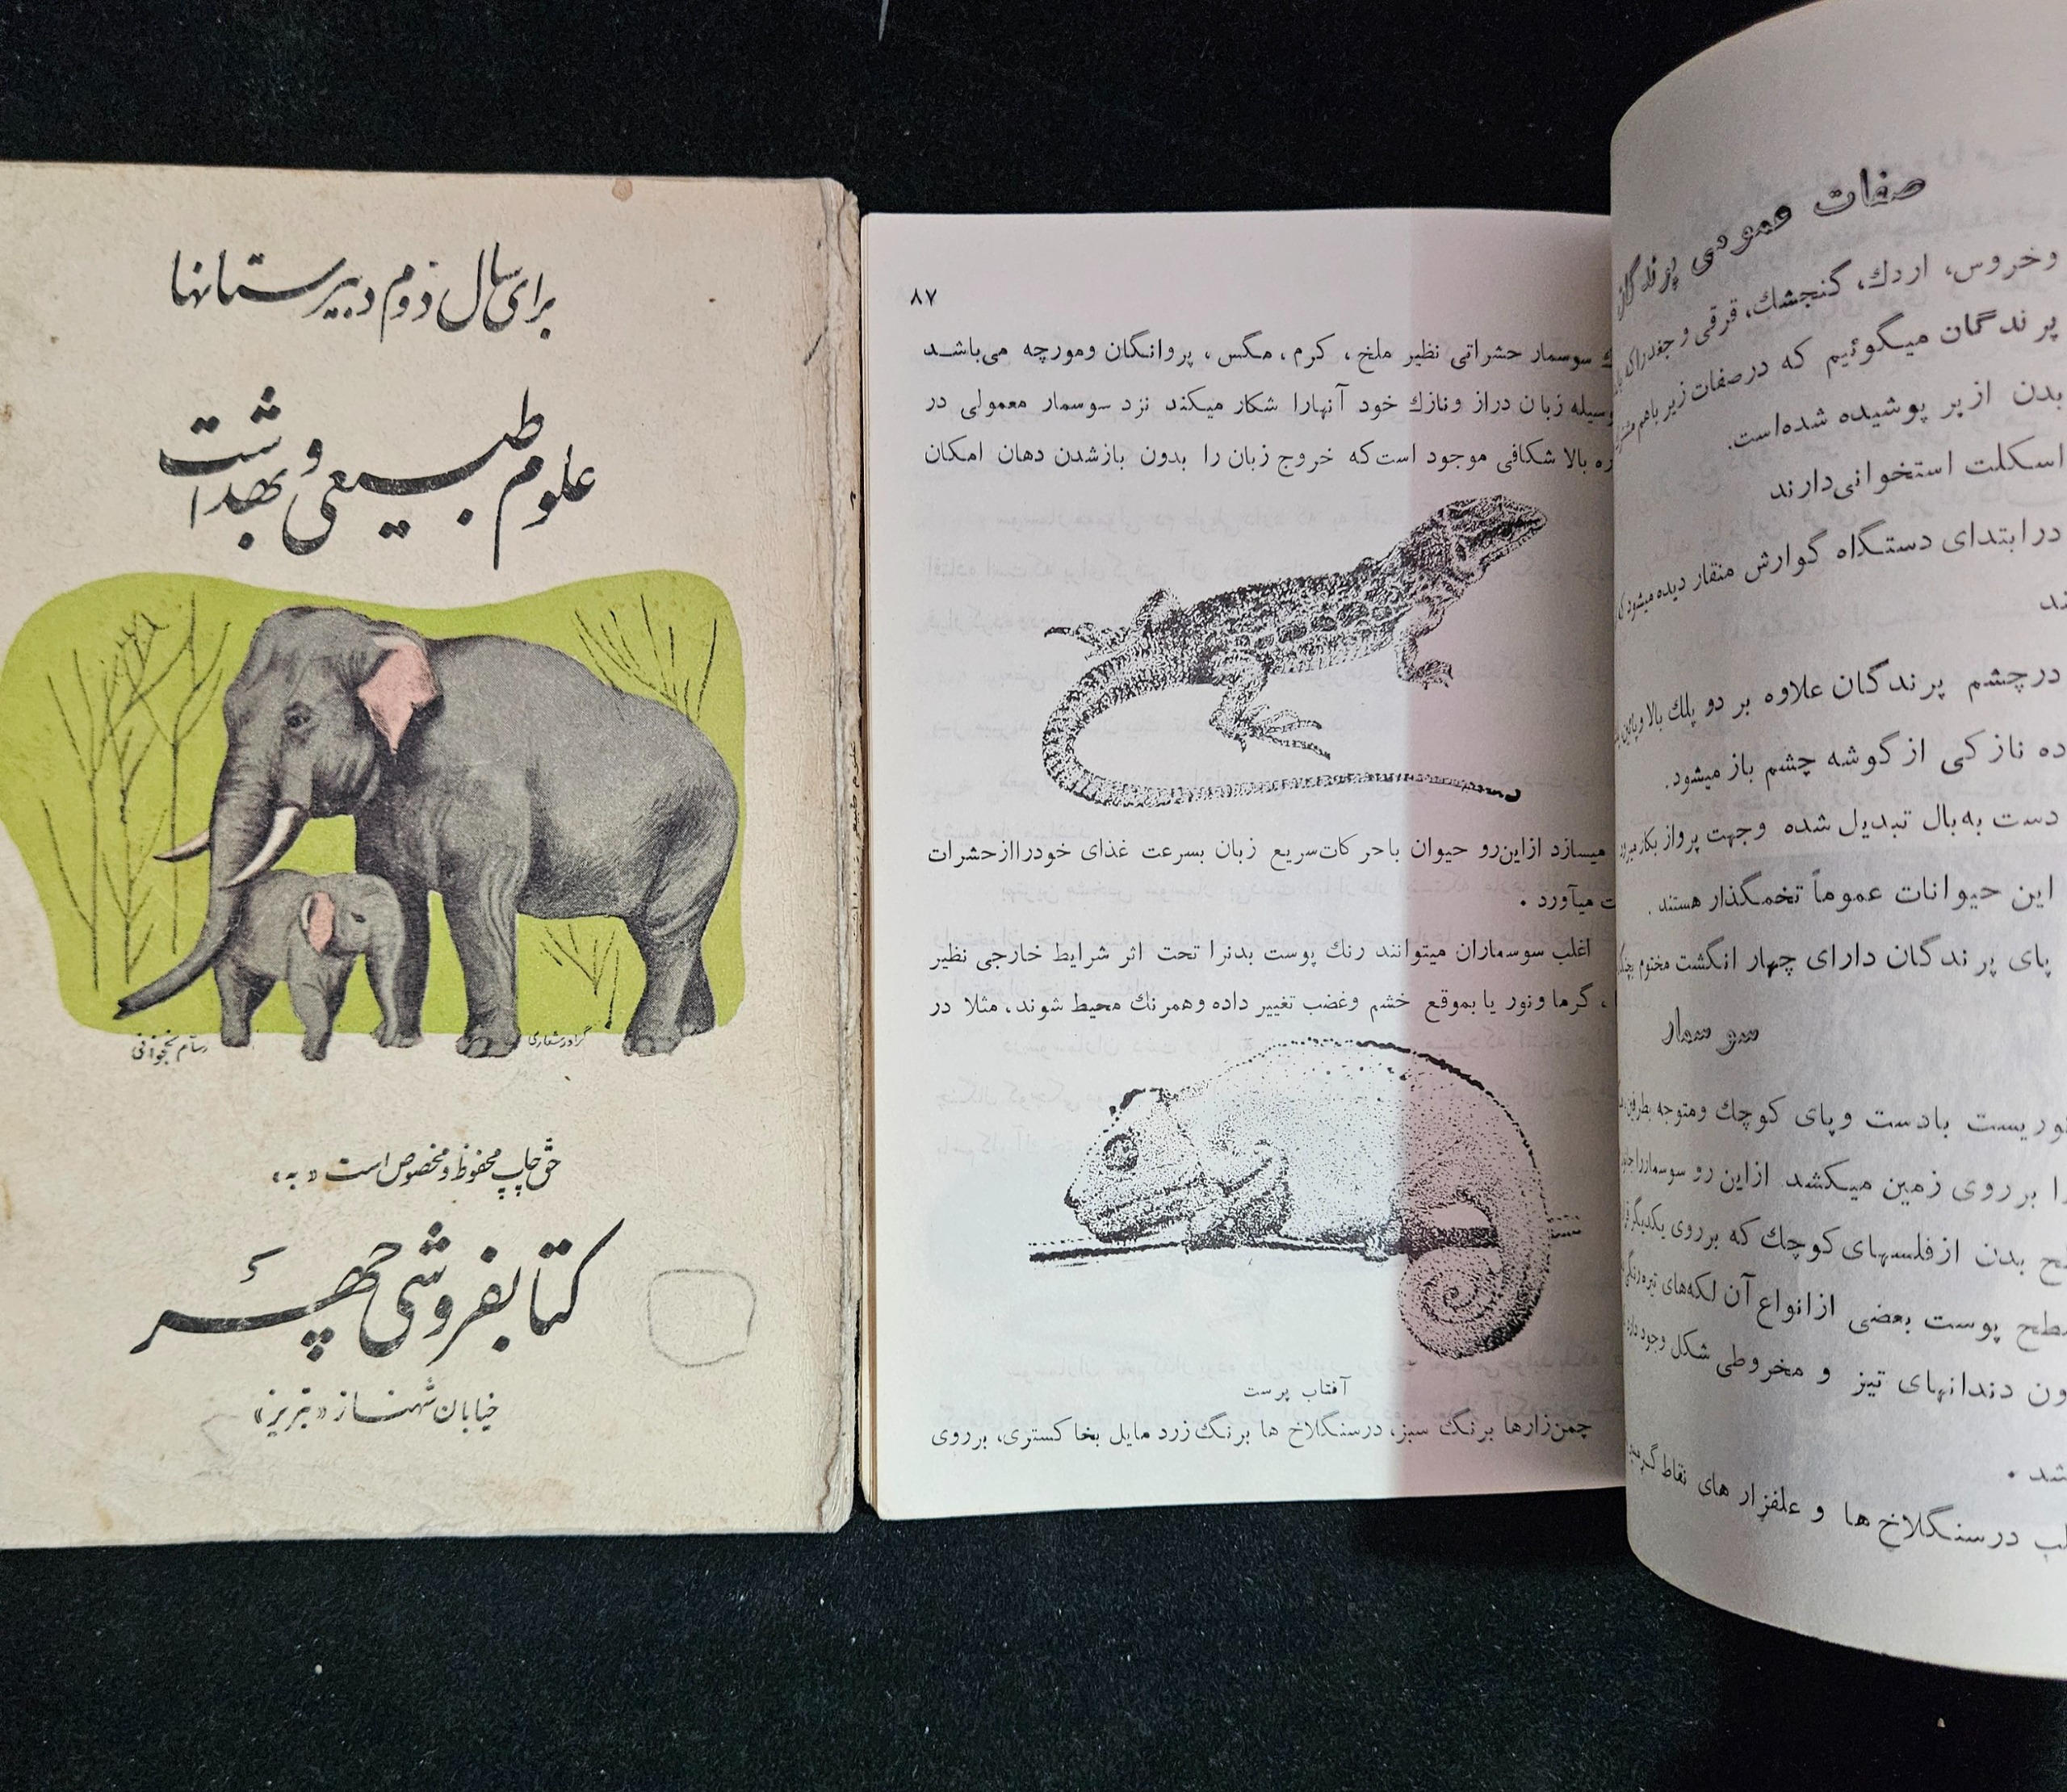 برای سال دوم دبیرستانها
علوم طبیعی و بهداشت
رسام نخجوانی
گراور شعاری
حق چاپ محفوظ و مخصوص است «به»
کتابفروشی چهر
خیابان شهناز «تبریز»
۸۷
سوسمار حشراتی نظیر ملخ، کرم، مگس، پروانگان ومورچه می‌باشد
وسیله زبان دراز ونازك خود آنهارا شکار میکند نزد سوسمار معمولی در
بالا شکافی موجود است که خروج زبان را بدون بازشدن دهان امکان
میسازد ازاین‌رو حیوان باحرکات‌سریع زبان بسرعت غذای خودرااز حشرات
میآورد .
اغلب سوسماران میتوانند رنك پوست بدنرا تحت اثر شرایط خارجی نظیر
، گرما ونور یا بموقع خشم وغضب تغییر داده وهمرنك محیط شوند، مثلا در
آفتاب پرست
چمن‌زارها برنگ سبز، درسنگلاخ ها برنگ زرد مایل بخاکستری، برروی
صفات عمومی پرندگان
وخروس، اردك، گنجشك، قرقی و جغد رای
پرندگان میگوئیم که درصفات زیر باهم
بدن ازپر پوشیده شده‌است.
اسکلت استخوانی‌دارند
درابتدای دستگاه گوارش منقار دیده میشود
ند
درچشم پرندگان علاوه بر دو پلك بالا وپائین
نازکی ازگوشه چشم باز میشود.
دست به‌بال تبدیل شده وجهت پرواز بکار میرود
این حیوانات عموماً تخمگذار هستند.
پای پرندگان دارای چهار انگشت مختوم
سوسمار
بادست وپای کوچك ومتوجه بطرفین
را برروی زمین میکشد ازاین رو سوسماررا
بدن ازفلسهای کوچك که برروی یکدیگر
سطح پوست بعضی ازانواع آن لکه‌های تیره‌رنگی
دندانهای تیز و مخروطی شکل وجود دارد
شد .
درسنگلاخ ها و علفزار های نقاط گرمسیر